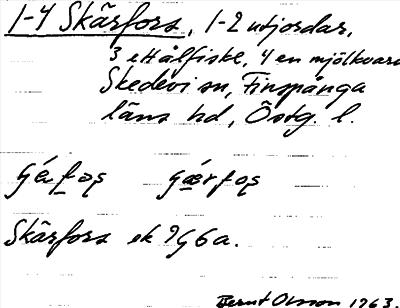 1-4 Skärfors, 1-2 utjordar,
3 ett ålfiske, 4 en mjölkvarn
Skedevi sn, Finspånga
läns hd, Östg. l.
Skärfors ek 9G6a.
Bernt Olsson 1963.